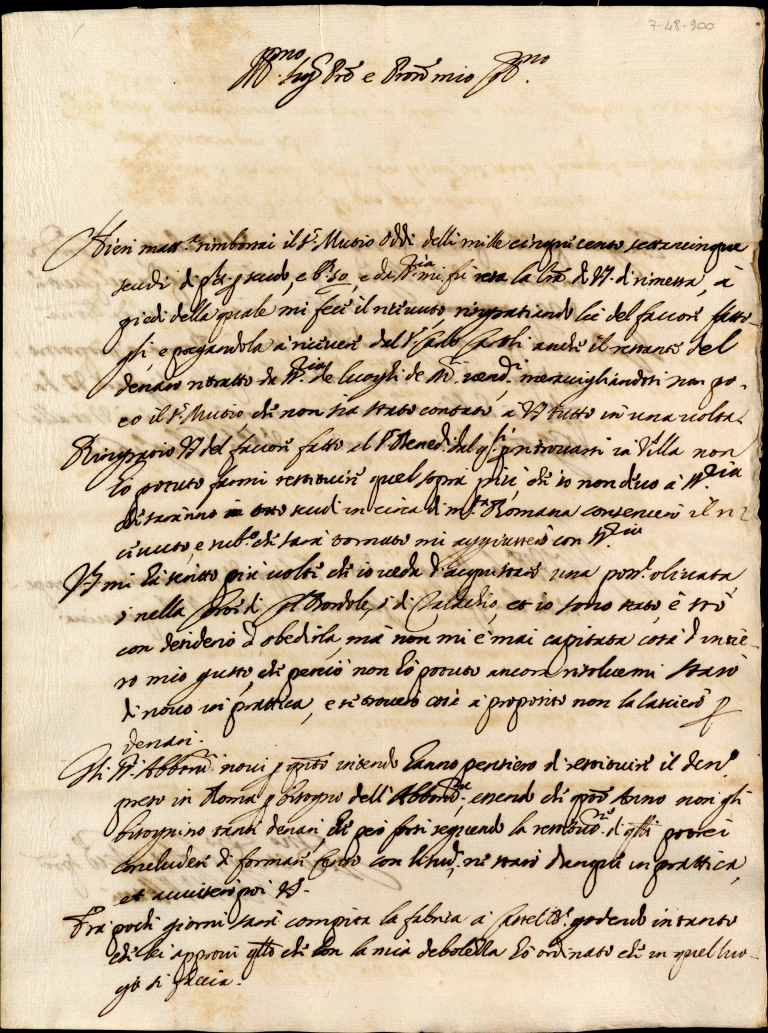 7-48-900
Ill.mo Sig.r Pron e Pron mio Col.mo
Hieri matt.a rimborsai il s.r Mutio Oddi delli mille cinquecento settantacinque
scudi di p.ta p scudo, e b. 50, e da V.S. Ill. mi fu resa la lra di V.S. di rimessa, à
piedi della quale mi feci il ricevuto ringratiando lei del favore fatto-
gli, e pregandola à ricevere dal s.r Carlo anche il restante del
denaro ritratto da de luoghi de M.ti vend.i meravigliandosi non po-
co il s.r Mutio, che non sia stato contato à VS tutto in una volta
Ringratio VS del favore fatto al s.r Bened. dal q.le p ritrovarsi in Villa non
hò potuto farmi restituire quel sopra più, che io non devo à
che saranno otto scudi in circa di m.ta Romana conserverò il ri-
cevuto, e sub.o che sarà tornato mi aggiusterò con
VS mi hà scritto più volte che io veda d'acquistare una poss. olivata
ò nella Corte di ò di et io sono stato, e stò
con desiderio d'obedirla, mà non mi è mai capitata cosa d'intie-
ro mio gusto, che perciò non hò potuto ancora risolvermi starò
di novo in prattica, e se troverò cosa à proposito non la lascierò p
denari.
Gli SS.i Abbond. novi p q.to intendo hanno pensiero di restituire il den.o
preso in Roma p bisogno dell'Abbond.za, essendo che q.to Anno non gli
bisognino tanti denari, che però forsi seguendo la restitut.ne di q.lli potrei
concludere di formare Censo con ne starò dunque in prattica,
et avviserò poi VS.
Frà pochi giorni sarà compita la fabrica à godendo intanto
che lei approvi q.llo che con la mia debolezza hò ordinato che in quel luo-
go si faccia.